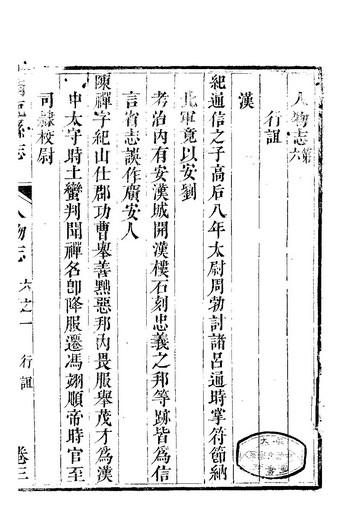 人物志第六
行誼
漢
紀通信之子高后八年太尉周勃討諸呂通時掌符節納
北軍竟以安劉
考治內有安漢城開漢樸石刻忠義之邦等跡皆為信
言省志誤作廣安人
陳禪字紀山仕郡功曹舉善黜惡邦內畏服舉茂才為漢
中太守時土蠻判聞禪名卽降服遷馮翊順帝時官至
司隸校尉
縣志
人物志
六之一
行誼
卷三